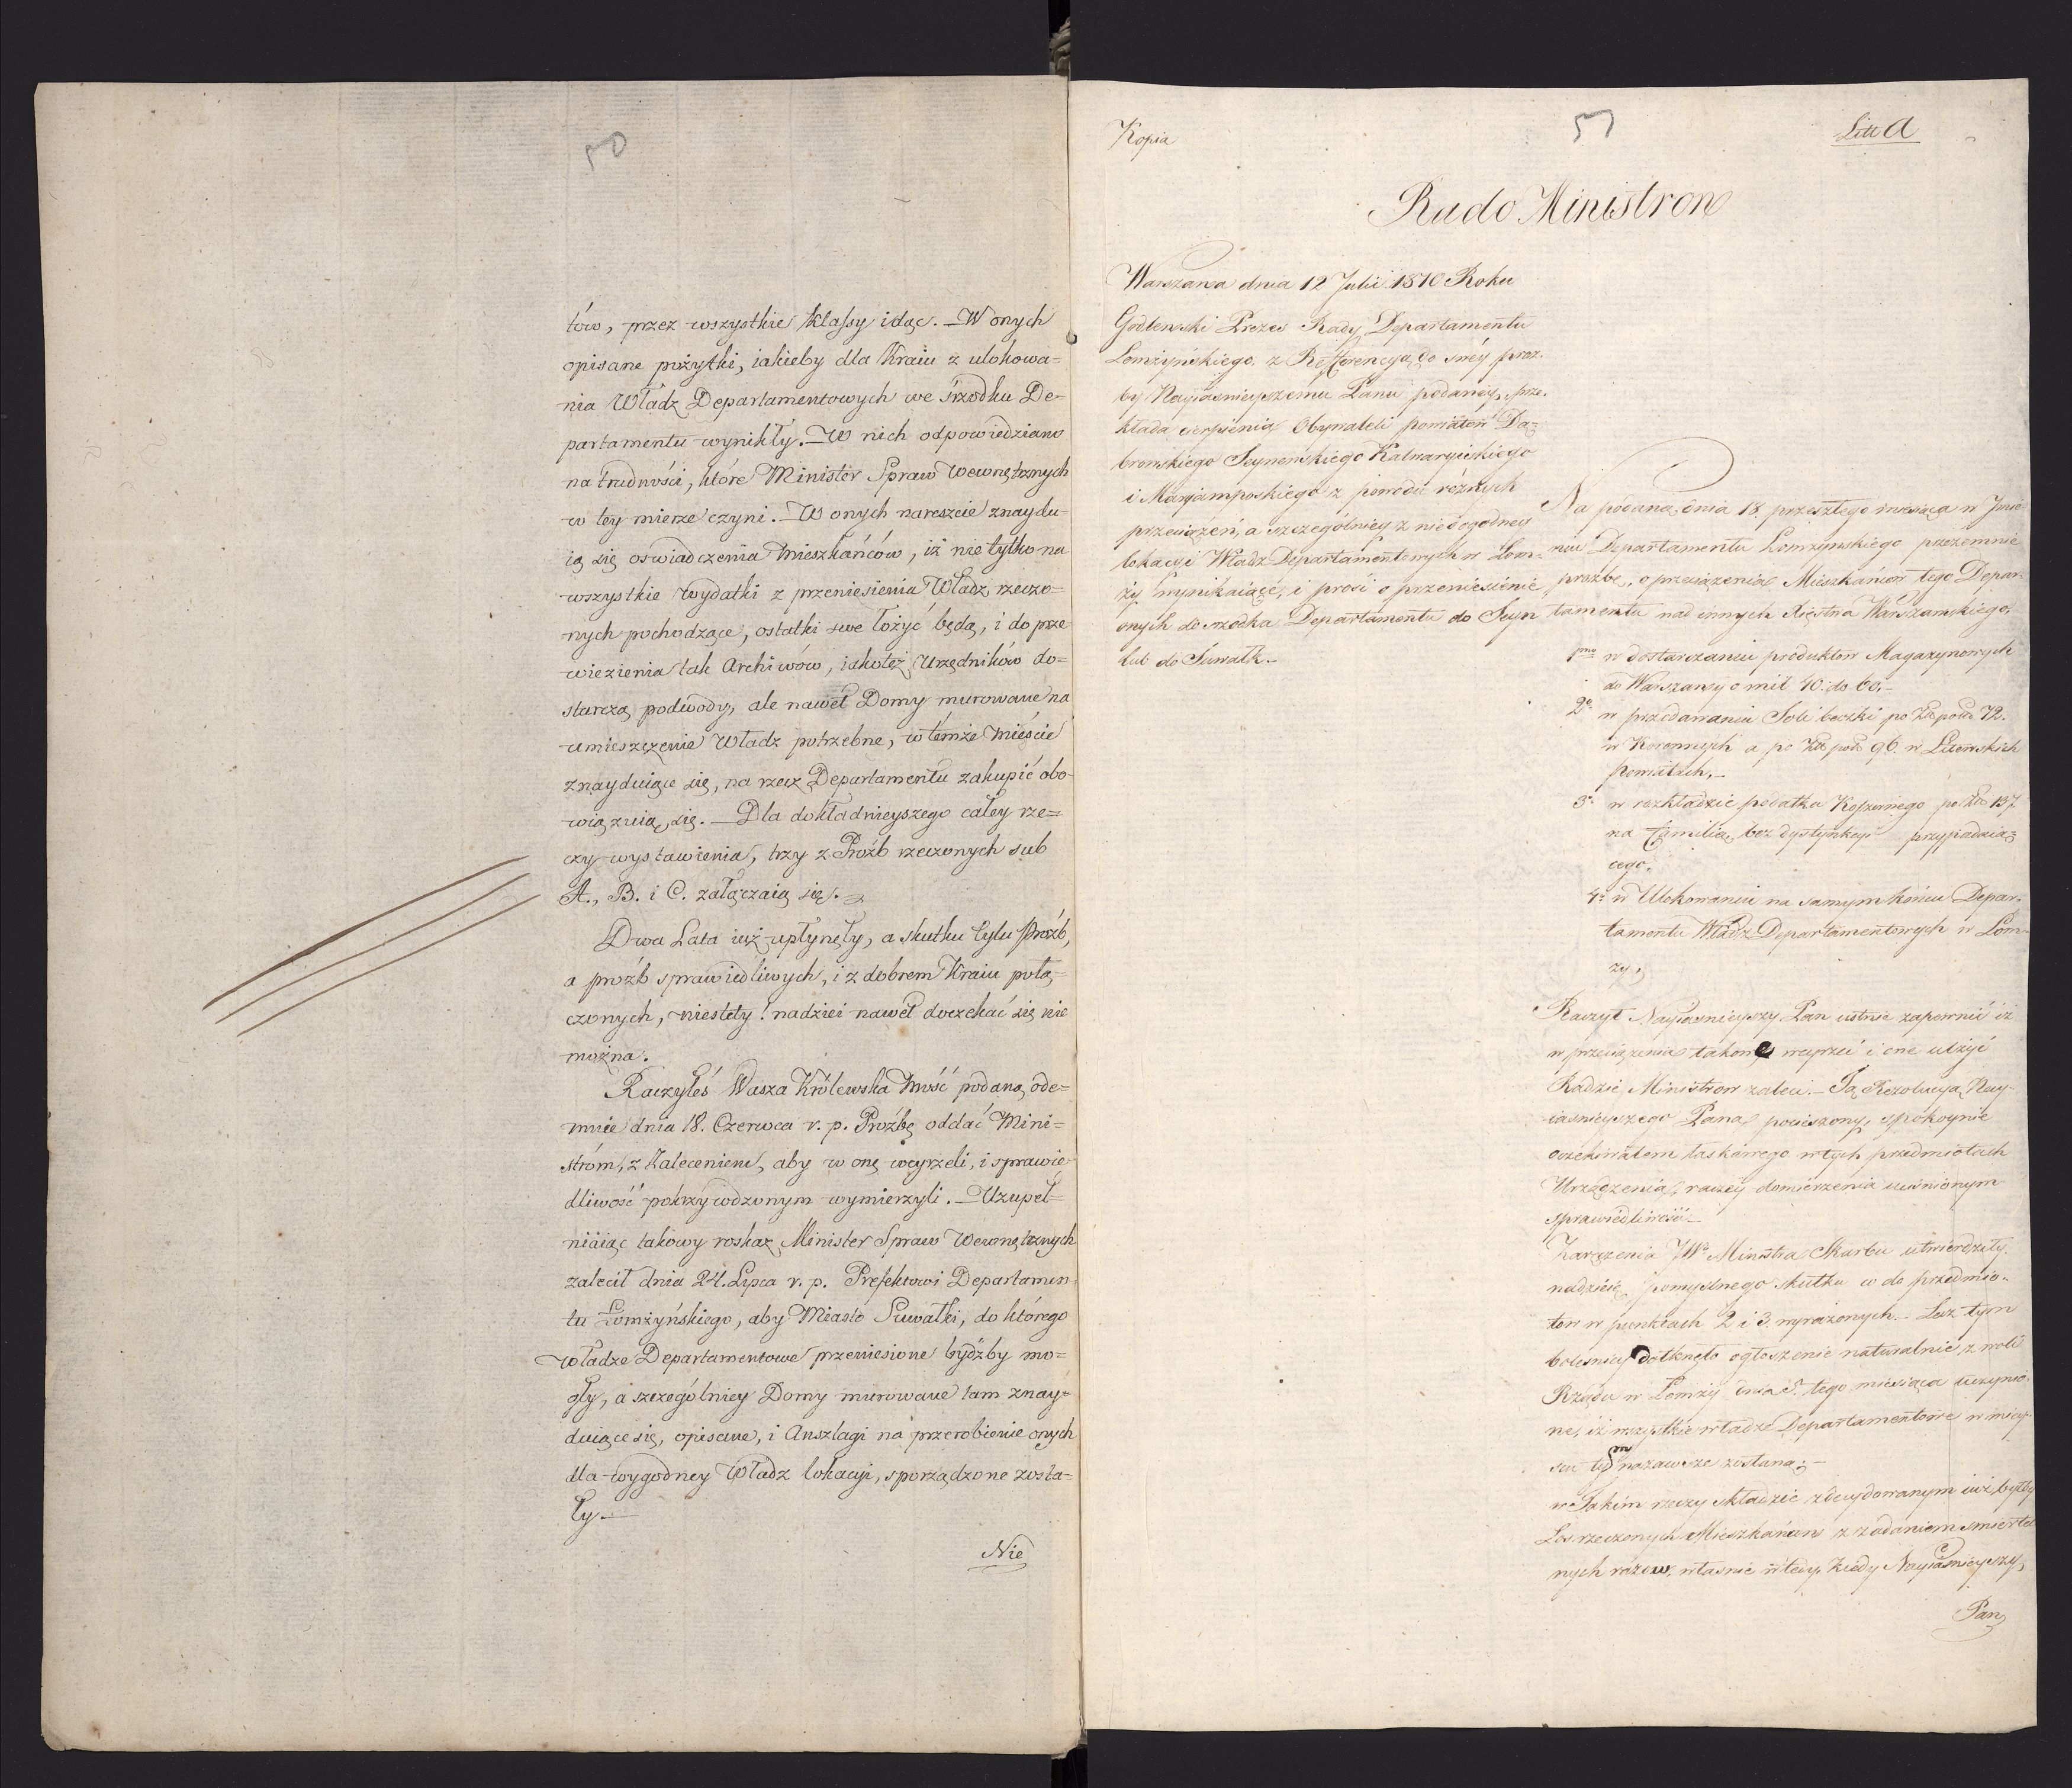 50
tów, przez wszystkie klassy idąc. — W onych
opisane pożytki, iakieby dla Kraiu z ulokowa=
nia Władz Departamentowych we śrzodku De=
partamentu wynikły. — W nich odpowiedziano
na trudności, które Minister Spraw Wewnętrznych
w tey mierze czyni. — W onych nareszcie znaydu=
ią się oświadczenia Mieszkańców, iż nie tylko na
wszystkie wydatki z przeniesienia Władz rzeczo=
nych pochodzące, ostatki swe łożyć będą, i do prze
wiezienia tak Archiwów, iakoteż Urzędników do=
starczą podwody, ale nawet Domy murowane na
umieszczenie Władz potrzebne, w temże Mieście
znayduiące się, na rzecz Departamentu zakupić obo=
wiązuią się. — Dla dokładnieyszego całey rze=
czy wystawienia, trzy z Proźb rzeczonych sub
A., B. i C. załączaią się. —
Dwa Lata iuż upłynęły, a skutku tylu Proźb,
a proźb sprawiedliwych, i z dobrem Kraiu połą=
czonych, niestety! nadziei nawet doczekać się nie
można.
Raczyłeś Wasza Królewska Mość podaną ode=
mnie dnia 18. Czerwca r. p. Proźbę oddać Mini=
stróm, z Zaleceniem, aby w onę weyrzeli, i sprawie=
dliwość pokrzywdzonym wymierzyli. — Uzupeł=
niaiąc takowy roskaz Minister Spraw Wewnętrznych
zalecił dnia 24. Lipca r. p. Prefektowi Departamen=
tu Łomżyńskiego, aby Miasto Suwałki, do którego
Władze Departamentowe przeniesione bydźby mo=
gły, a szczególniey Domy murowane tam znay=
duiące się, opisane, i Anszlagi na przerobienie onych
dla wygodney Władz lokacyi, sporządzone zosta=
ły. —
Nie
Kopia
51
Litt A
Rada Ministrow
Warszawa dnia 12 Julii 1810 Roku
Godlewski Prezes Rady Departamentu
Lomżyńskiego, z Refferencyą do swéy proź-
by Nayiasnieyszemu Panu podaney, prze-
kłada cierpienia Obywateli powiatow Dą=
browskiego Seynenskiego Kalwaryiskiego
i Maryamposkiego z powodu różnych
przeciążeń, a szczególniey z niedogodney
lokacyi Władz Departamentowych w Lom=
ży wynikaiące, i prosi o przeniesienie
onych do srzodka Departamentu do Seyn
lub do Suwałk. —
Na podaną dnia 18. przeszłego miesiąca w Imie
niu Departamentu Lomżynskiego przezemnie
prozbę, o przeciążenia Mieszkańcow tego Depar-
tamentu nad innych Xięstwa Warszawskiego,
1mo w dostarczaniu produktow Magazynowych
do Warszawy o mil 40. do 60. —
2o w przedawaniu Soli beczki po Zł pols 72.
w Koronnych a po Zł pols 96. w Litewskich
powiatach. —
3o w rozkładzie podatku Koszernego po Zło 137
na familią bez dystynkcyi przypadaią=
cego.
4o w Ulokowaniu na samym końcu Depar-
tamentu Władz Departamentowych w Lom-
ży,
Raczył Nayiasnieyszy Pan ustnie zapewnić iż
w przeciążenia takowe weyrzeć i one ulżyć
Radzie Ministrow zaleci. — Tą Rezolucyą Nay-
iasnieyszego Pana pocieszony, spokoynie
oczekiwałem łaskawego w tych przedmiotach
Urządzenia, raczey domierzenia ucisnionym
sprawiedliwości. —
Zarządzenia JWo Ministra Skarbu utwierdziły
nadzieię pomyslnego skutku co do przedmio-
tow w punktach 2 i 3. wyrażonych. — Lecz tym
bolesniey dotknęło ogłoszenie naturalnie z woli
Rządu w Lomży dnia 5. tego miesiąca uczynio-
ne, iż wszystkie władze Departamentowe w miey-
scu tym nazawsze zostaną; —
w Takim rzeczy składzie zdecydowanym iuż byłby
Los rzeczonych Mieszkańcow z zadaniem smiertel
nych razow, własnie wtedy, kiedy Nayiasnieyszy
Pan